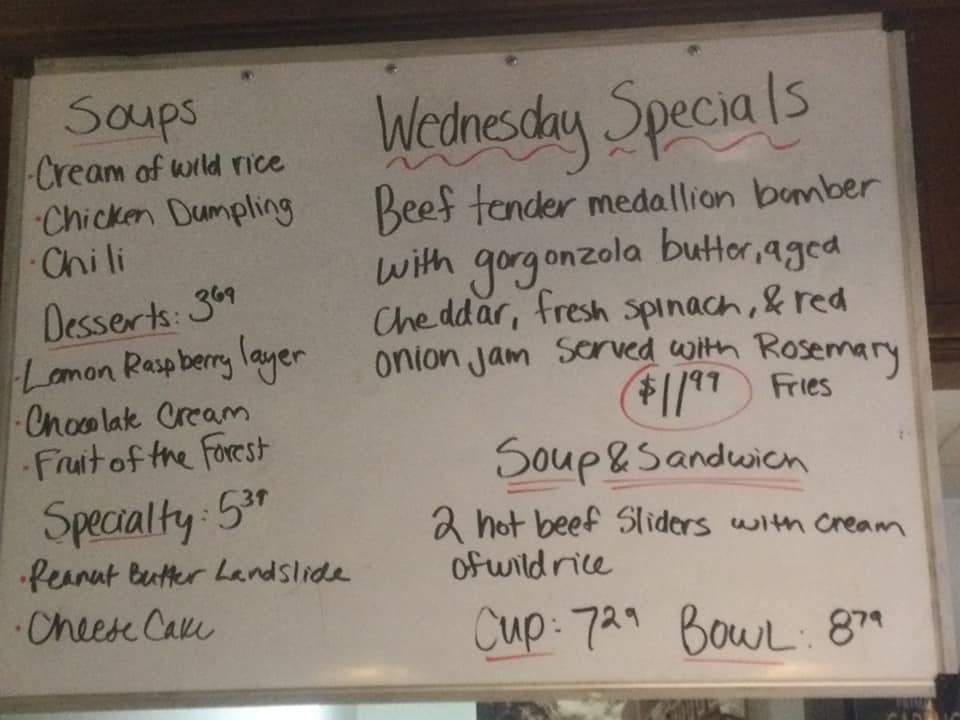 Soups
Cream of wild rice
Chicken Dumpling
Chili
Desserts: 3 69
Lemon Raspberry layer
Chocolate Cream
Fruit of the Forest
Specialty: 5 39
Peanut Butter Landslide
Cheese Cake
Wednesday Specials
Beef tender medallion bomber
with gorgonzola butter, aged
cheddar, fresh spinach, & red
onion jam served with Rosemary
$11 99 Fries
Soup & Sandwich
2 hot beef Sliders with cream
of wild rice
Cup: 7 29 Bowl: 8 79